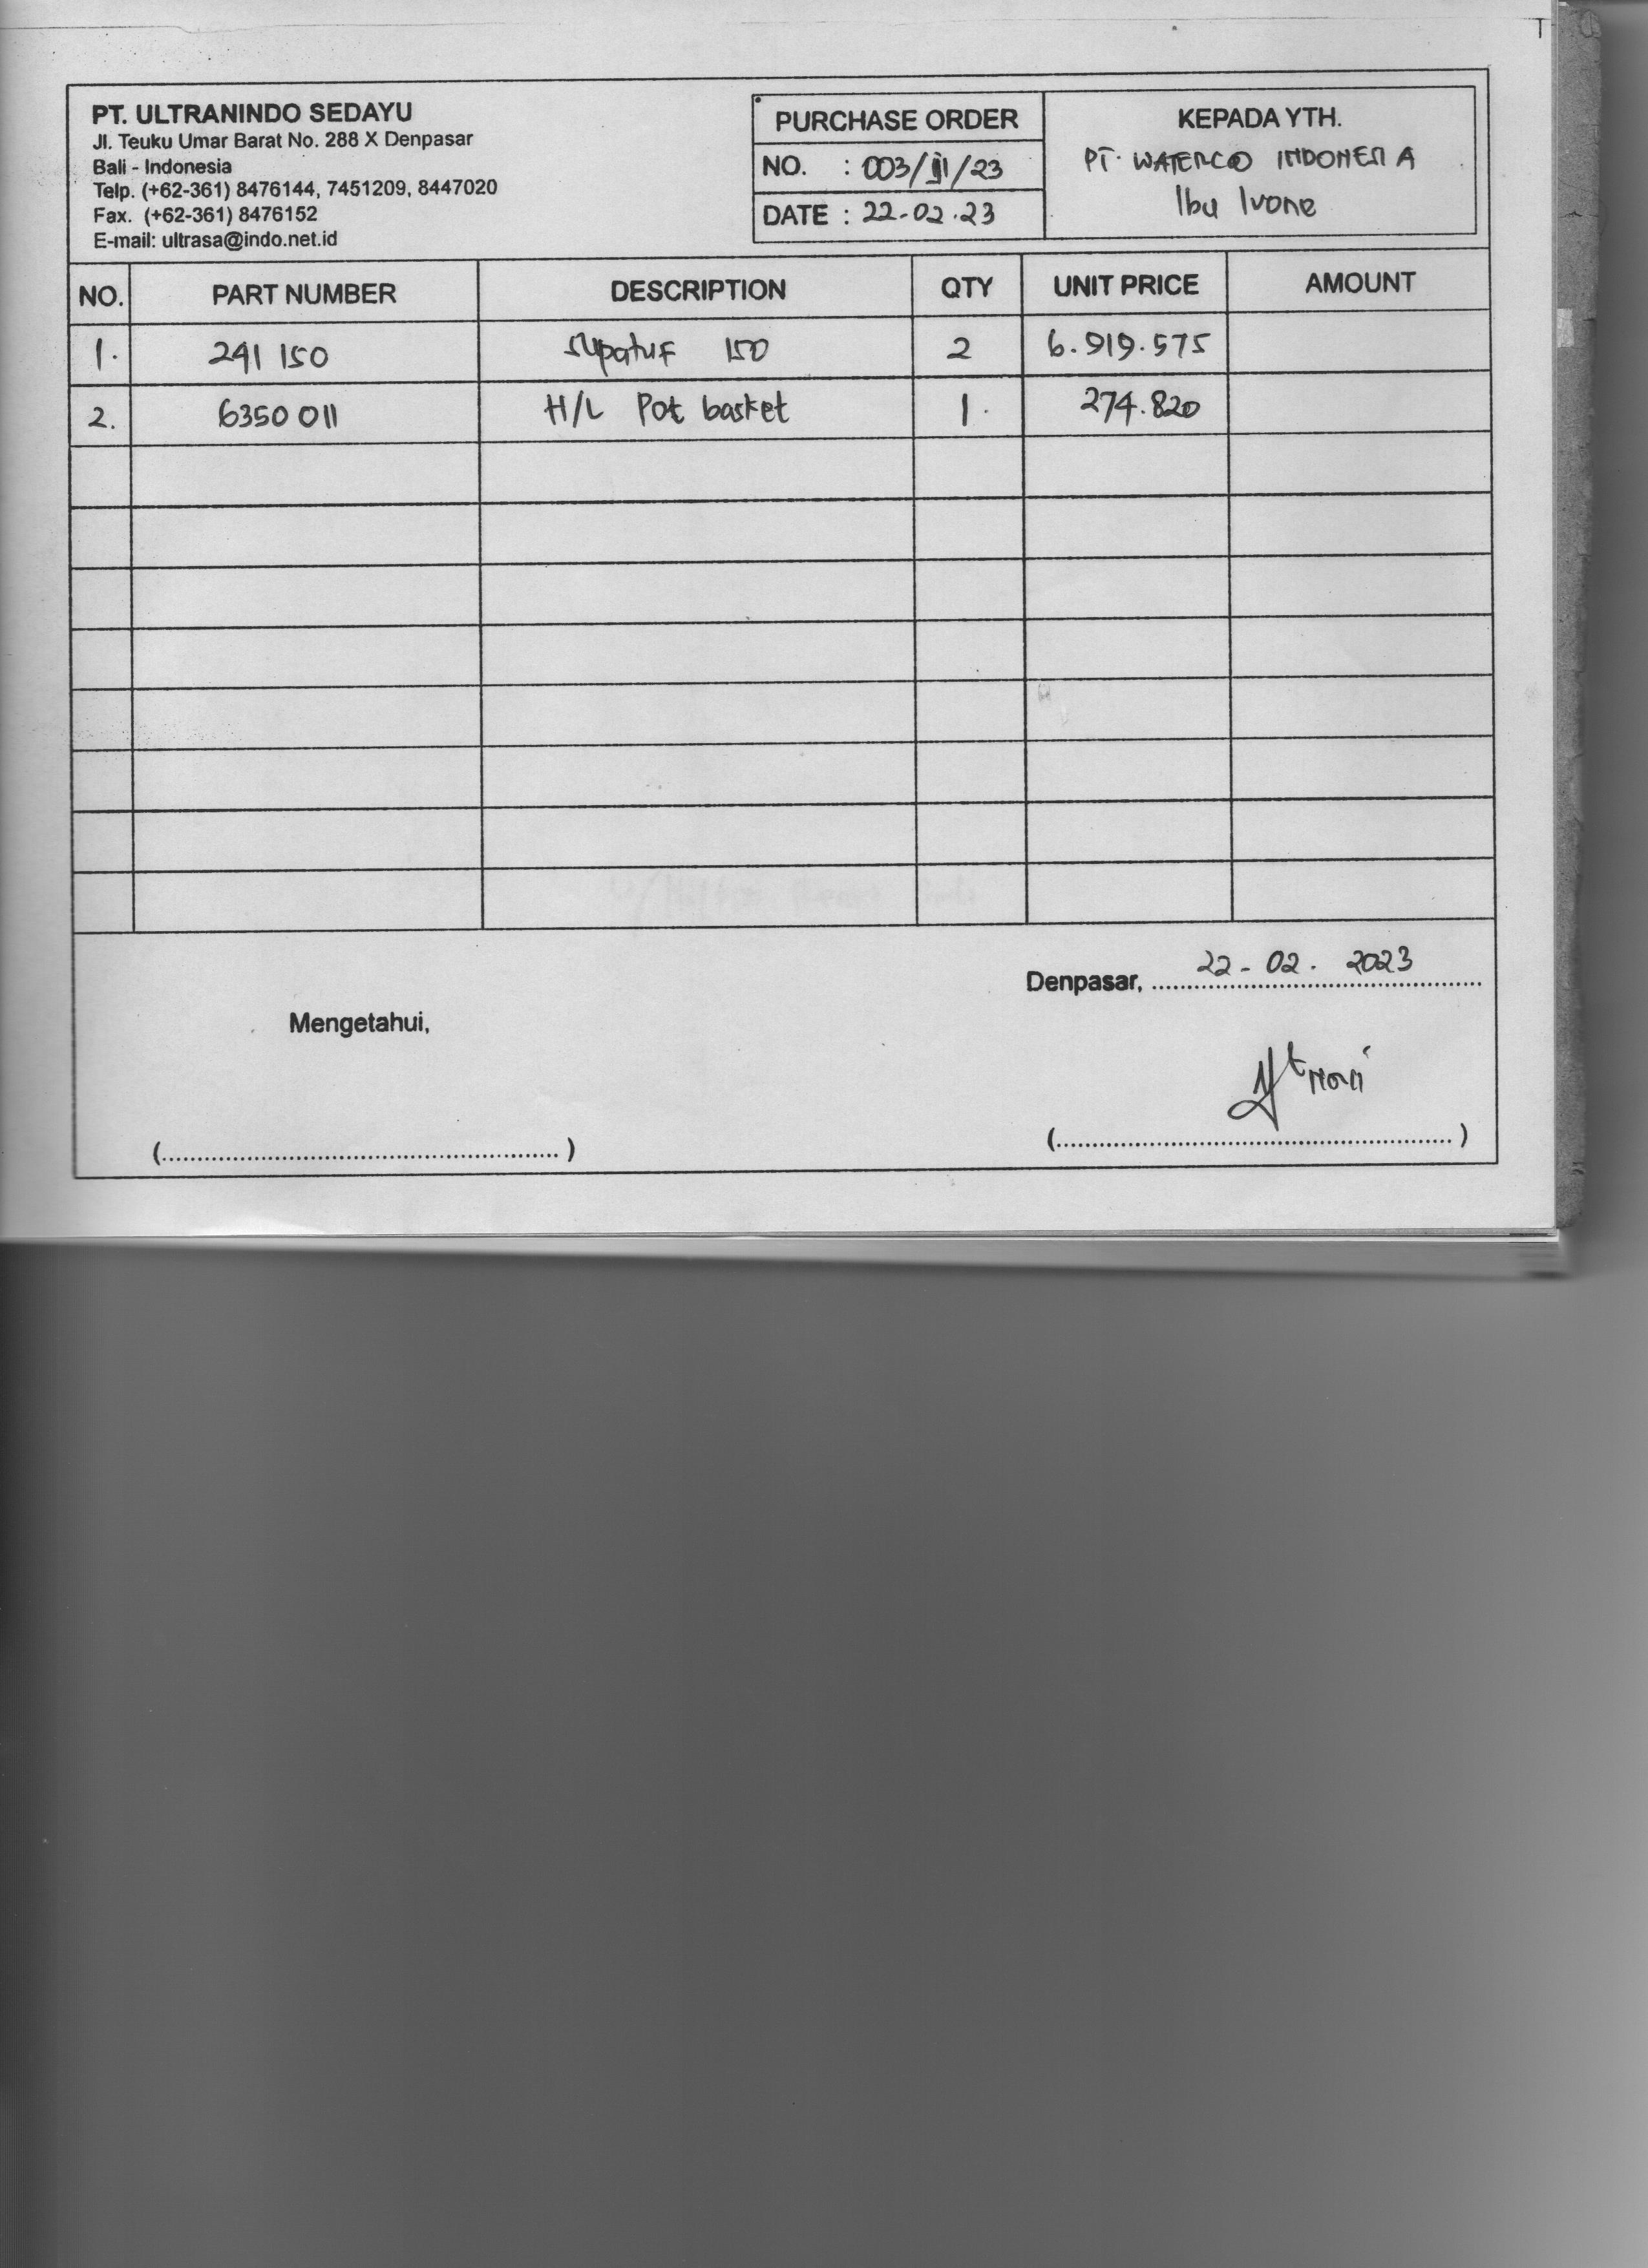 PT. ULTRANINDO SEDAYU
Jl. Teuku Umar Barat No. 288 X Denpasar
Bali - Indonesia
Telp. (+62-361) 8476144, 7451209, 8447020
Fax. (+62-361) 8476152
E-mail: ultrasa@indo.net.id
PURCHASE ORDER
NO. : 003/II/23
DATE : 22-02.23
KEPADA YTH.
PT. WATERCO INDONESIA
Ibu Ivone
NO. PART NUMBER DESCRIPTION QTY UNIT PRICE AMOUNT
1. 241 150 supatuf 150 2 6.919.575
2. 6350 011 H/L Pot basket 1. 274.820
Denpasar, 22-02. 2023
Mengetahui,
(........................) (........................)